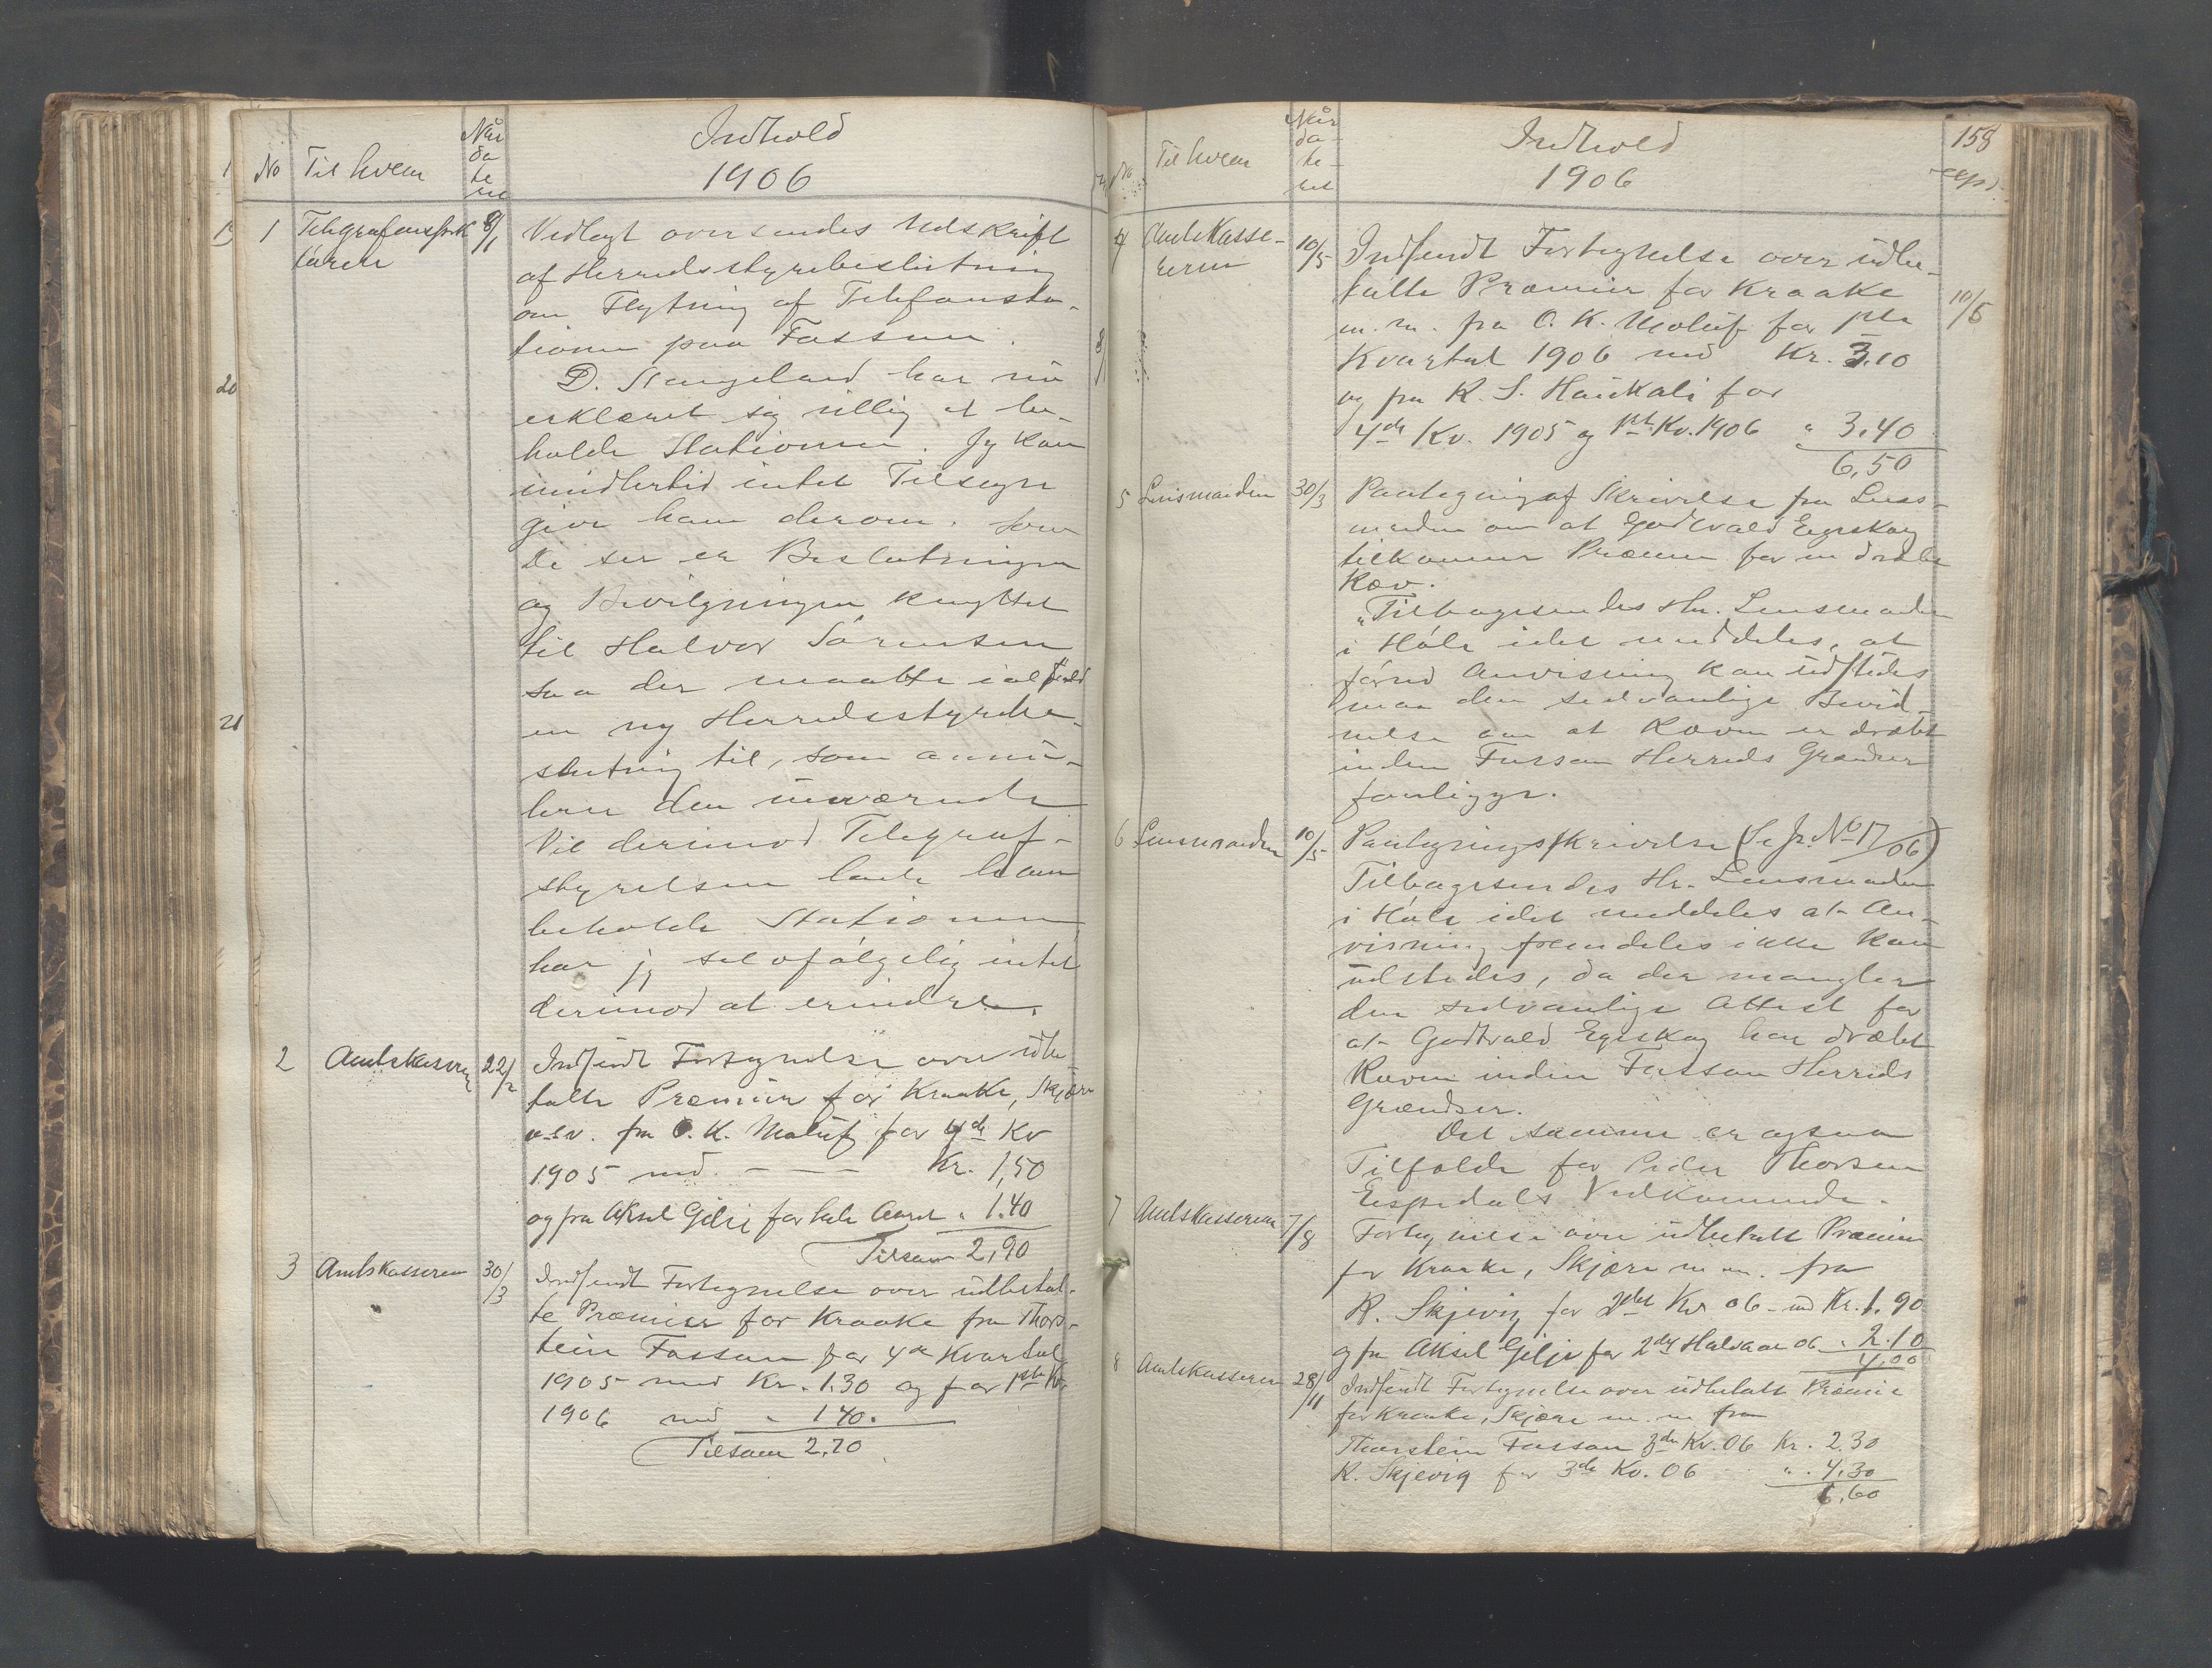 No Til hvem Når da te ret Indhold
1906
1 Telegrafinspek 8/1 Vedlagt oversendes Udskrift
tøren af Herredsstyrebeslutning
om Flytning af Telefonsta-
tionen paa Fossan.
D. Stangeland har nu
erklæret sig villig at be-
holde Stationen. Jeg kan
imidlertid intet Tilsagn
give ham derom. Som
De ser er Beslutningen
og Bevilgningen knyttet
til Halvor Sørensen
saa der maatte ialfald
en ny Herredsstyrebe-
slutning til, som annu-
lerer den nuværende
Vil derimod Telegraf-
styrelsen lade ham
beholde Stationen
har jeg selvfølgelig intet
derimod at erindre.
2 Amtskasseren 22/2 Indsendt Fortegnelse over udbe
talte Præmier for Kraake, Skjære
o.s.v. fra O. K. Moluf for 4de Kv
1905 med - - - Kr. 1,50
og fra Aksel Gilje for hele Aaret " 1.40
Tilsam 2,90
3 Amtskasseren 30/3 Indsendt Fortegnelse over udbetal-
te Præmier for Kraake fra Thors-
tein Fossan for 4de Kvartal
1905 med Kr. 1.30 og for 1ste Kv
1906 med " 1 40.
Tilsam 2.70
No Til hvem Når da- te- ret Indhold 158
1906 exp.
4 Amtskasse- 10/5 Indsendt Fortegnelse over udbe-
reren talte Præmier for Kraake 10/5
m. m. fra O. K. Moluf for 1ste
Kvartal 1906 med Kr. 3.10
og fra R. S. Haukali for
4de Kv. 1905 og 1ste Kv. 1906 " 3.40
6,50
5 Lensmanden 30/3 Paategning af Skrivelse fra Lens-
manden om at Godtvald Egeskog
tilkommer Præmie for en dræbt
Ræv.
"Tilbagesendes Hr. Lensmanden
i Høle idet meddeles, at
førend Anvisning kan udstedes
maa den sedvanlige Bevid-
nelse om at Ræven er dræbt
inden Fossan Herreds Grændser
foreligge.
6 Lensmanden 10/5 Paategningsskrivelse (Se Jr. No 17/06)
Tilbagesendes Hr. Lensmanden
i Høle idet meddeles at An-
visning fremdeles ikke kan
udstedes, da der mangler
den sedvanlige Attest for
at Godtvald Egeskog har dræbt
Ræven inden Fossan Herreds
Grændser.
Det samme er ogsaa
Tilfælde for Peder Thorsen
Espedals Vedkommende.
7 Amtskasseren 7/8 Fortegnelse over udbetalt Præmie
for Kraake, Skjære m m. fra
R. Skjevig for 2det Kv 06 - med Kr. 1. 90
og fra Aksel Gilje for 2det Halvaar 06 " 2.10
4,00
8 Amtskasseren 28/11 Indsendt Fortegnelse over udbetalt Præmie
for Kraake, Skjære m. m fra
Thorstein Fossan 3de Kv. 06 Kr. 2.30
R. Skjevig for 3de Kv. 06 " 4.30
6,60